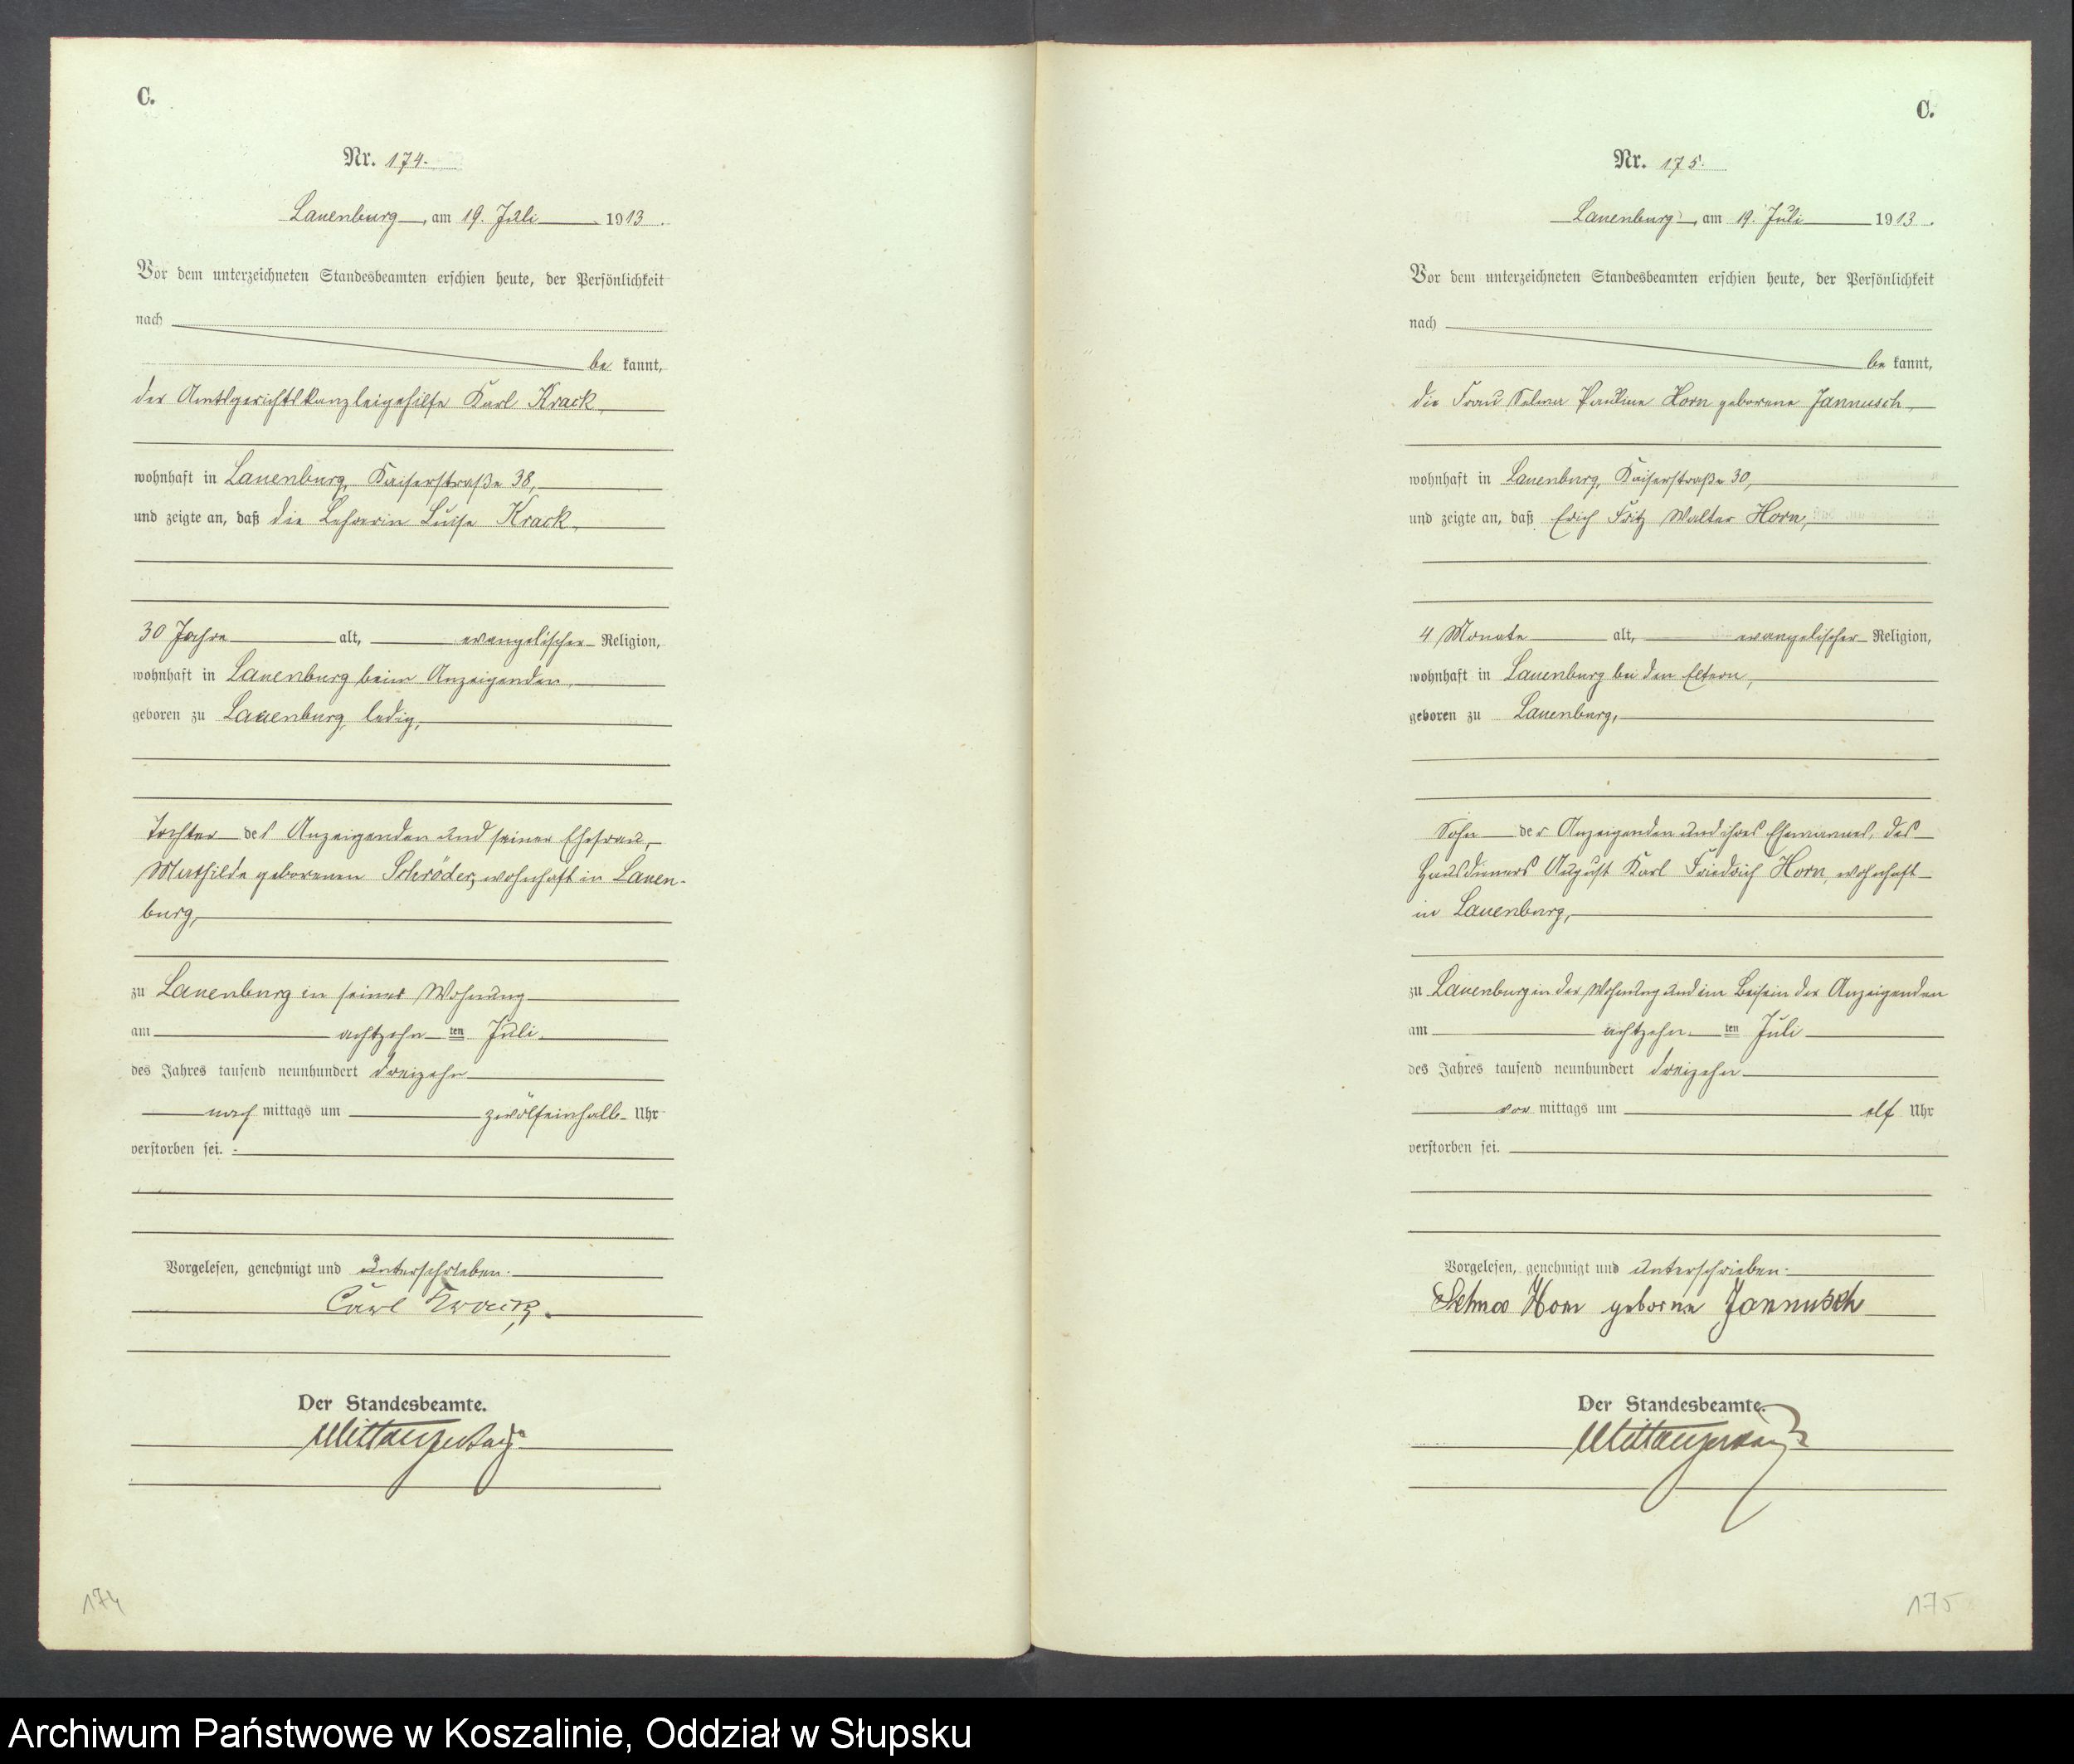 C.
Nr. 174.
Lauenburg, am 19. Juli 1913.
Vor dem unterzeichneten Standesbeamten erschien heute, der Persönlichkeit
nach
be kannt,
der Amtsgerichtskanzleigehilfe Karl Krack,
wohnhaft in Lauenburg, Kaiserstraße 38,
und zeigte an, daß die Lehrerin Luise Krack,
30 Jahre alt, evangelischer Religion,
wohnhaft in Lauenburg beim Anzeigenden,
geboren zu Lauenburg, ledig,
Tochter des Anzeigenden und seiner Ehefrau,
Mathilde geborenen Schröder, wohnhaft in Lauen-
burg,
zu Lauenburg in seiner Wohnung
am achtzehn ten Juli
des Jahres tausend neunhundert dreizehn
nach mittags um zwölfeinhalb Uhr
verstorben sei.
Vorgelesen, genehmigt und unterschrieben.
Carl Krack.
Der Standesbeamte.
174
C.
Nr. 175.
Lauenburg, am 19. Juli 1913.
Vor dem unterzeichneten Standesbeamten erschien heute, der Persönlichkeit
nach
be kannt,
die Frau Selma Pauline Horn geborene Jannusch,
wohnhaft in Lauenburg, Kaiserstraße 30,
und zeigte an, daß Erich Fritz Walter Horn,
4 Monate alt, evangelischer Religion,
wohnhaft in Lauenburg bei den Eltern,
geboren zu Lauenburg,
Sohn der Anzeigenden und ihres Ehemannes, des
Hausdieners August Karl Friedrich Horn, wohnhaft
in Lauenburg,
zu Lauenburg in der Wohnung und im Beisein der Anzeigenden
am achtzehn ten Juli
des Jahres tausend neunhundert dreizehn
vor mittags um elf Uhr
verstorben sei.
Vorgelesen, genehmigt und unterschrieben.
Selma Horn geborne Jannusch
Der Standesbeamte.
175
Archiwum Państwowe w Koszalinie, Oddział w Słupsku